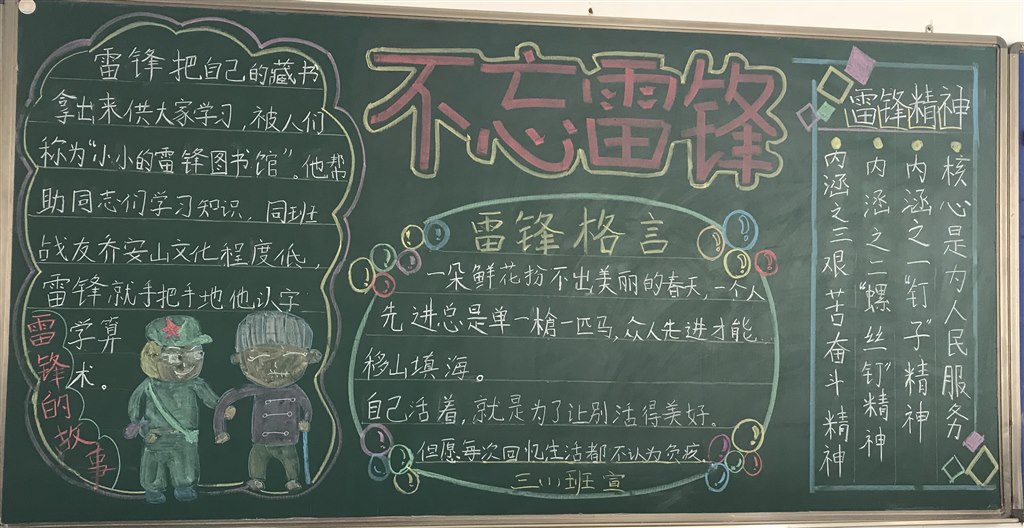 不忘雷锋
雷锋把自己的藏书
拿出来供大家学习,被人们
称为“小小的雷锋图书馆”。他帮
助同志们学习知识,同班
战友乔安山文化程度低,
雷锋就手把手地他认字
学算
术。
雷锋的故事
雷锋格言
一朵鲜花扮不出美丽的春天,一个人
先进总是单一槍一匹马,众人先进才能
移山填海。
自己活着,就是为了让别活得美好。
但愿每次回忆生活都不认为负疚
三(1)班宣
雷锋精神
核心是为人民服务
内涵之一“钉子”精神
内涵之二“螺丝钉”精神
内涵之三艰苦奋斗精神